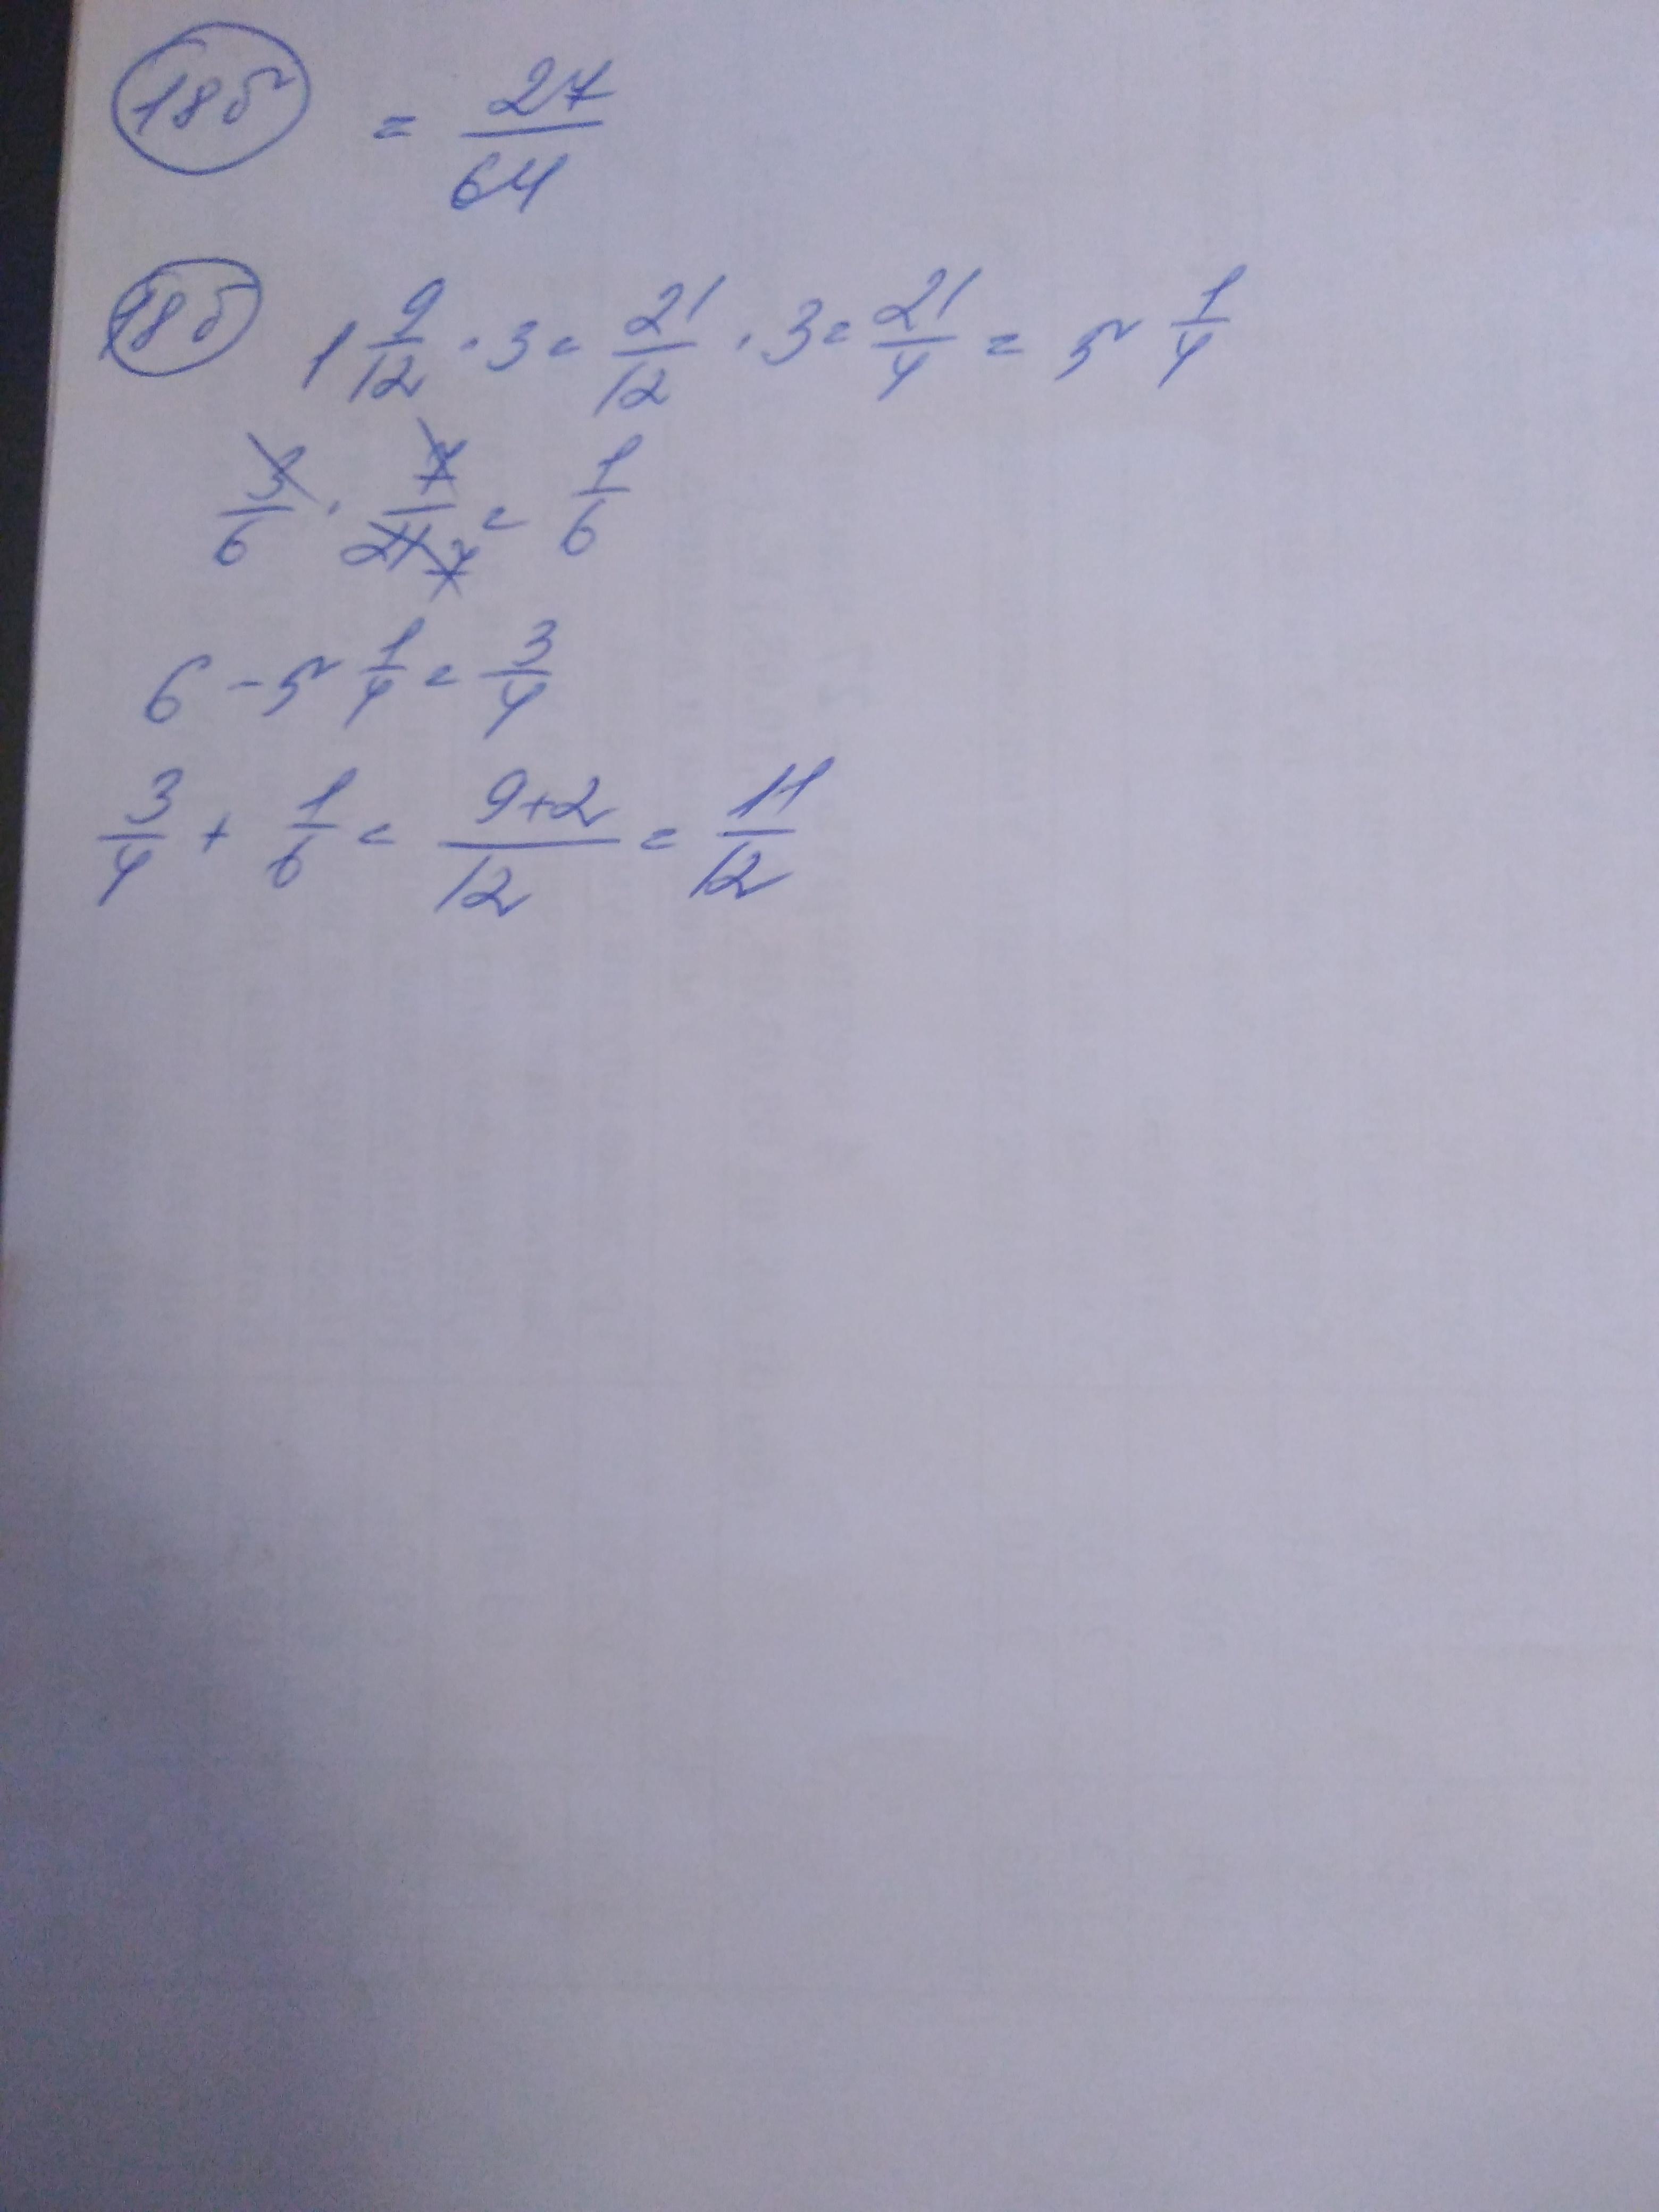 185 = 27/64
18б 1 9/12 · 3 = 21/12 · 3 = 21/4 = 5 1/4
3/6 · 7/21 7 = 1/6
6 - 5 1/4 = 3/4
3/4 + 1/6 = 9+2/12 = 11/12